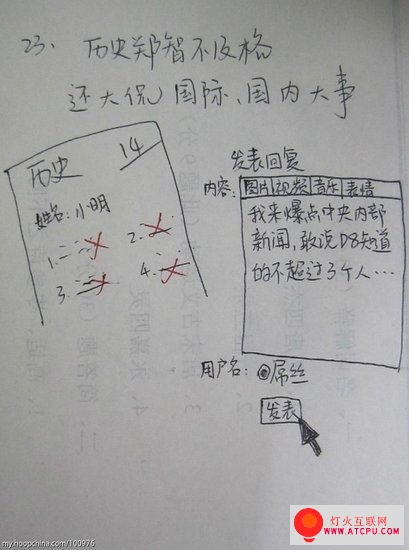 23、历史郑智不及格
还大侃国际、国内大事
历史 14
姓名:小明
1.
2.
3.
4.
发表回复
内容:
图片 视频 音乐 表情
我来爆点中央内部
新闻,敢说D8知道
的不超过3个人…
用户名: 屌丝
发表
my.hoopchina.com/100976
灯火互联网
WWW.ATCPU.COM